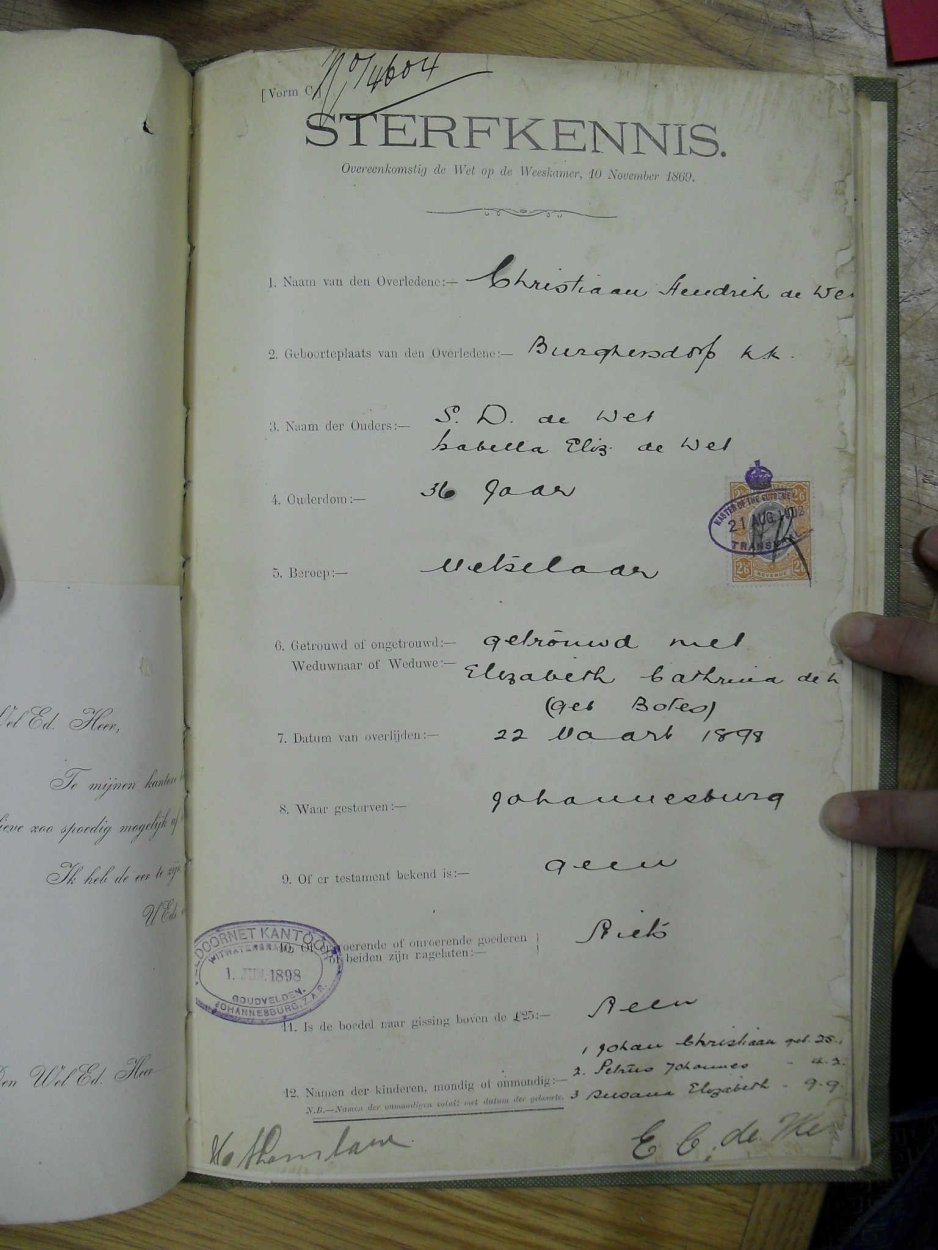 No 4604
[Vorm C.]
STERFKENNIS.
Overeenkomstig de Wet op de Weeskamer, 10 November 1869.
1. Naam van den Overledene:— Christiaan Hendrik de We
2. Geboorteplaats van den Overledene:— Burghersdorp k.k.
3. Naam der Ouders:— S. D. de Wet
Isabella Eliz. de Wet
4. Ouderdom:— 36 Jaar
MASTER OF THE SUPREME
21 AUG 1902
TRANSVAAL
2/6 REVENUE 2/6
5. Beroep:— Metselaar
6. Getrouwd of ongetrouwd:— getrouwd met
Weduwnaar of Weduwe:— Elizabeth Cathrina de
(geb Botes)
7. Datum van overlijden:— 22 Maart 1898
8. Waar gestorven:— Johannesburg
9. Of er testament bekend is:— geen
10. Of roerende of onroerende goederen
of beiden zijn nagelaten:— Niets
11. Is de boedel naar gissing boven de £25:— Neen
12. Namen der kinderen, mondig of onmondig:—
1 Johan Christiaan geb. 25.
2. Petrus Johannes - 4.2.
3 Susana Elizabeth - 9.9.
N.B.—Namen der onmondigen voluit met datum der geboorte.
E C. de We
DOORNET KANTOOR
WITWATERSRAND
1. JUN. 1898
GOUDVELDEN.
JOHANNESBURG, Z.A.R.
Wel Ed. Heer,
Te mijnen kantore
lieve zoo spoedig mogelijk
Ik heb de eer te zijn
UEd
Den Wel Ed. Heer